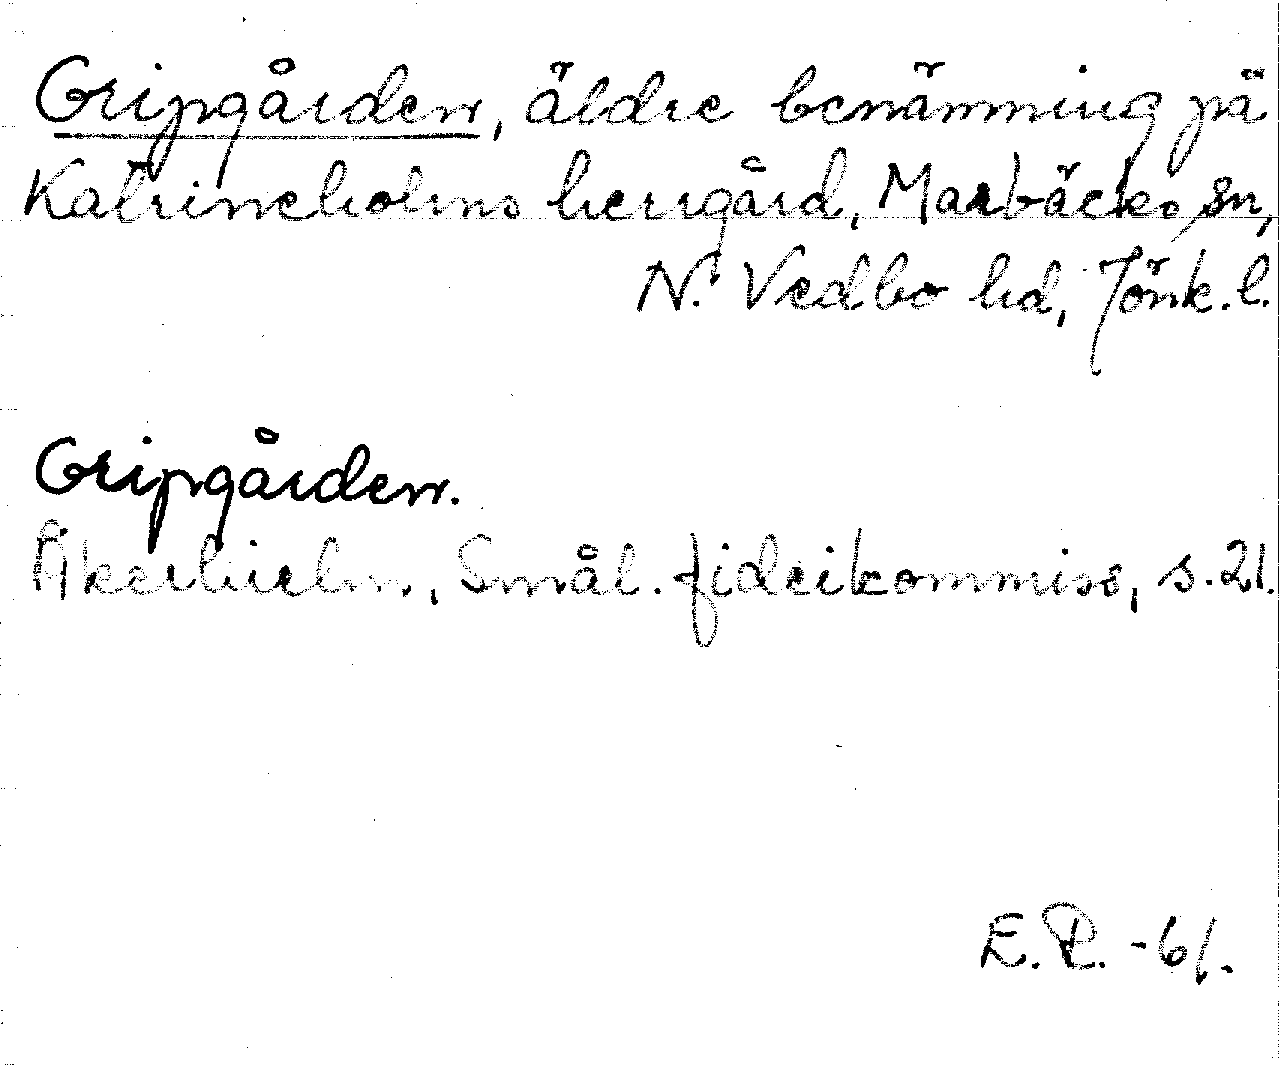 Gripgården, äldre benämning på
Katrineholms herrgård, Marbäcks sn,
N. Vedbo hd, Jönk. l.
Gripgården.
Åkerhielm, Smål. fideikommiss, s. 21.
E. R. -61.